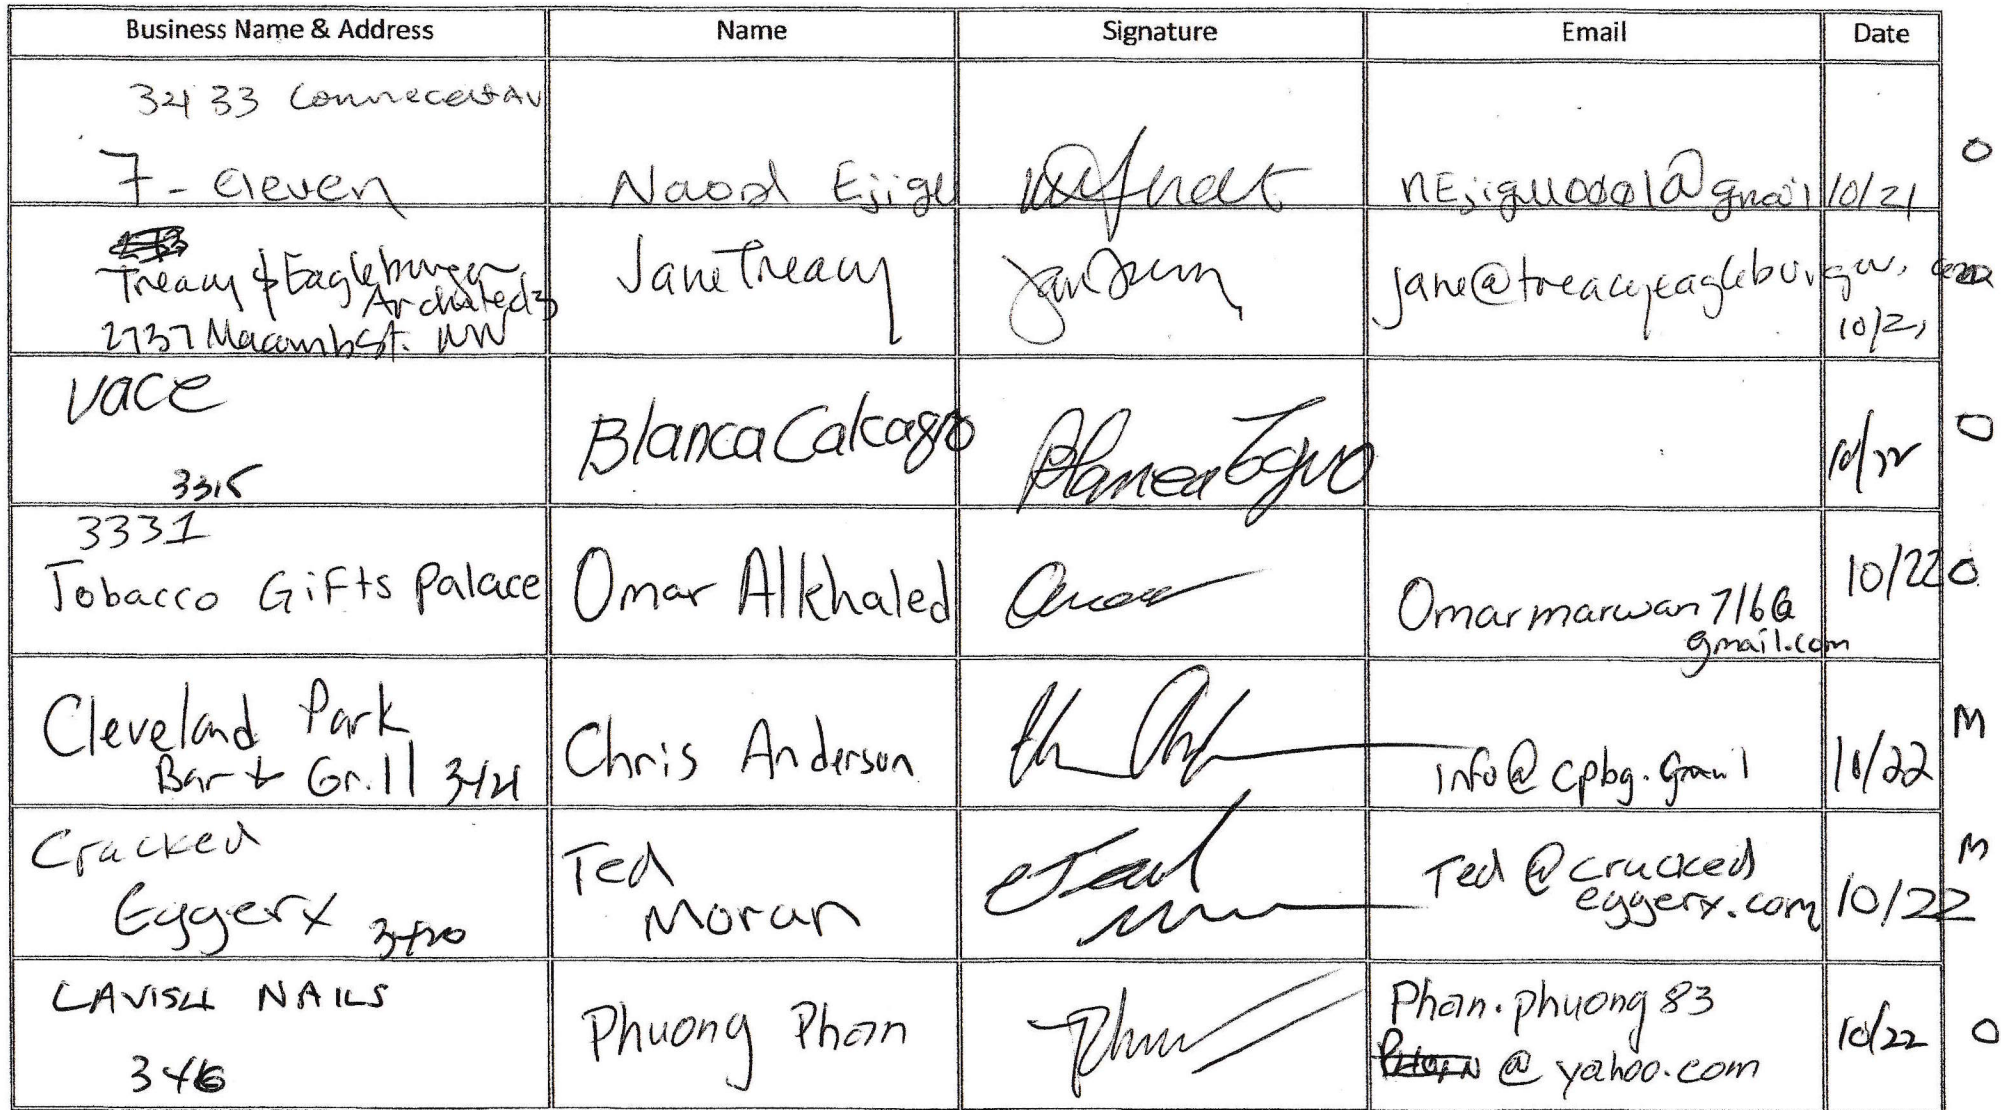 Business Name & Address Name Signature Email Date
3433 Connecat Av
7-eleven Naod Ejigu 10/21 O
Treacy & Eagleburger
Architects
2737 Macomb St. NW
Jane Treacy
jane@treacyeagleburger.com
10/21
Vace
3315
Blanca Calcagno 10/22 O
3331
Tobacco Gifts Palace Omar Alkhaled 10/22 O
Omarmarwan716@
gmail.com
Cleveland Park
Bar & Grill 3421
Chris Anderson info@cpbg.gmail 10/22 M
Cracked
Eggery 3420
Ted
Moran
Ted@cracked
eggery.com 10/22 M
LAVISH NAILS
Phuong Phan
Phan.phuong83
@yahoo.com
10/22 O